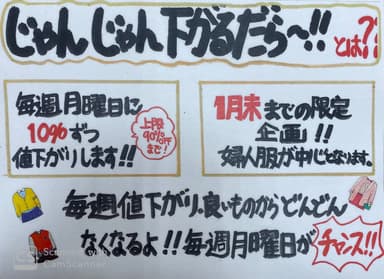 じゃんじゃん下がるだら〜!! とは??
毎週月曜日に
10%ずつ
値下がりします!!
上限
90%OFF
まで!
1月末までの限定
企画!!
婦人服が中心となります。
毎週値下がり、良いものからどんどん
なくなるよ!!毎週月曜日が
チャンス!!
CamScanner